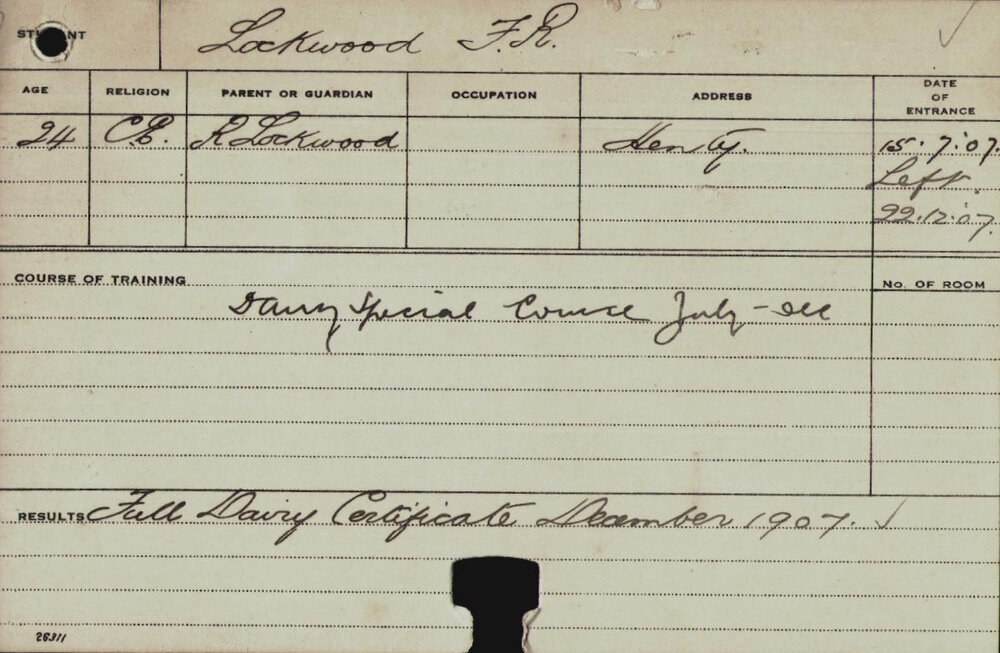 STUDENT Lockwood F.R.
AGE RELIGION PARENT OR GUARDIAN OCCUPATION ADDRESS DATE OF ENTRANCE
24 C.E. R Lockwood Henty. 15.7.'07.
Left.
22.12.'07.
COURSE OF TRAINING No. OF ROOM
Dairy Special Course July - Dec
RESULTS Full Dairy Certificate December 1907.
26311